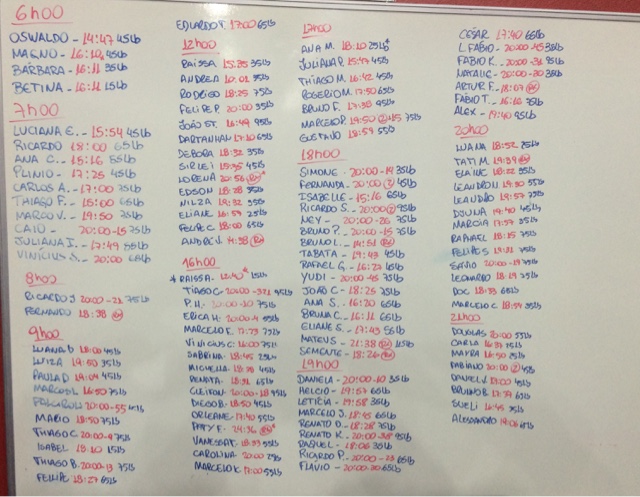 6h00
OSWALDO - 14:47 45lb
MAGNO - 16:10 45lb
BÁRBARA - 16:11 35lb
BETINA - 16:11 15lb
7h00
LUCIANA E. - 15:54 45lb
RICARDO 18:00 65lb
ANA C. - 15:16 55lb
PLINIO - 17:25 45lb
CARLOS A. - 17:00 75lb
THIAGO F. - 15:00 65lb
MARCO V. - 19:50 75lb
CAIO - 20:00-15 75lb
JULIANA I. - 17:49 55lb
VINICIUS S. - 20:00 65lb
8h00
RICARDO J 20:00-21 75lb
FERNANDO - 18:38
9h00
LUANA D 18:00 45lb
LUIZA 19:50 35lb
PAULA D 19:04 45lb
MARCOS L 16:50 75lb
20:00-55
MARIO 18:50 75lb
THIAGO C 20:00-9 75lb
ISABEL 18:10 15lb
THIAGO B. 20:00-13 75lb
FELLIPE 18:27 65lb
EDUARDO F. 17:00 65lb
12h00
RAISSA 15:35 35lb
ANDREA 10:01 55lb
RODRIGO 18:25 75lb
FELIPE P. 20:00 35lb
JOÃO ST. 16:49 95lb
DARTANHAN 17:10 65lb
DEBORA 18:32 35lb
SIRLEI 15:35 45lb
LORENA 20:56
EDSON 18:28 35lb
NILZA 19:32 55lb
ELIANE 16:59 25lb
FELIPE C. 18:00 65lb
ANDRE V. 14:38
16h00
* RAISSA. 12:40* 15lb
TIAGO C 20:00-32 95lb
P.H. 20:00-10 75lb
ERICA H. 20:00-4 65lb
MARCELO F. 17:73 75lb
VINICIUS C 16:00 75lb
SABRINA 18:45 25lb
MICHELLE 18:38 45lb
RENATA 18:31 65lb
CLEITON 20:00-18 95lb
DIEGO B. 18:50 45lb
ORLEANE 17:40 55lb
24:36
VANESSA T 18:53 55lb
CAROLINA 20:00 25lb
MARCELO K 17:00 55lb
17h00
ANA M. 18:10 25lb*
JULIANA P. 15:49 45lb
THIAGO M. 16:42 45lb
ROGERIO M 17:50 65lb
BRUNO F. 17:38 95lb
MARCELO P. 19:50 75lb
GUSTAVO 18:59 55lb
18h00
SIMONE. 20:00-19 35lb
FERNANDA. 20:00 45lb
ISABELLE - 15:16 65lb
RICARDO S. - 20:00 95lb
NEY - 20:00-26 75lb
BRUNO P. 20:00-15 75lb
BRUNO L. - 14:51
TABATA - 19:43 45lb
RAFAEL G. - 16:27 45lb
YUDI - 20:00-45 75lb
JOÃO C - 18:25 75lb
ANA S. - 16:20 65lb
BRUNA C. - 16:11 65lb
ELIANE S. - 17:43 55lb
MATEUS - 21:38
SEMENTE - 18:24
19h00
DANIELA - 20:00-10 35lb
HELCIO - 19:57 65lb
LETICIA - 17:58 35lb
MARCELO J. 18:45 65lb
RENATO O. - 18:28 75lb
RENATO K. - 20:00-38 95lb
RAQUEL - 18:06 35lb
RICARDO P. - 20:00-23 65lb
FLAVIO - 20:00-20 65lb
CESAR 17:40 65lb
L. FABIO - 20:00-45 35lb
FABIO K. - 20:00-31 95lb
NATALIE - 20:00-30 35lb
ARTUR F. - 18:07
FABIO T. - 16:16 75lb
ALEX - 19:40 95lb
20h00
LUANA 18:52 75lb
TATI M. 19:39
ELAINE 18:22 55lb
LEANDRO N 19:50 55lb
LEANDRO 19:57 75lb
DOUNA 19:40 45lb
MARCIA 17:57 35lb
RAPHAEL 18:25 75lb
FELIPE S 19:21 75lb
SAVIO 20:00-19 75lb
LEONARDO 18:19 75lb
DOC 18:33 65lb
MARCELO C 18:54 35lb
21h00
DOUGLAS 16:00 55lb
CARLA 16:37 35lb
MAYRA 16:50 35lb
FABIANO 20:00 45lb
DANIEL V. 17:00 45lb
BRUNO B. 17:37 75lb
SUELI 16:45 35lb
ALESSANDRO 19:06 65lb